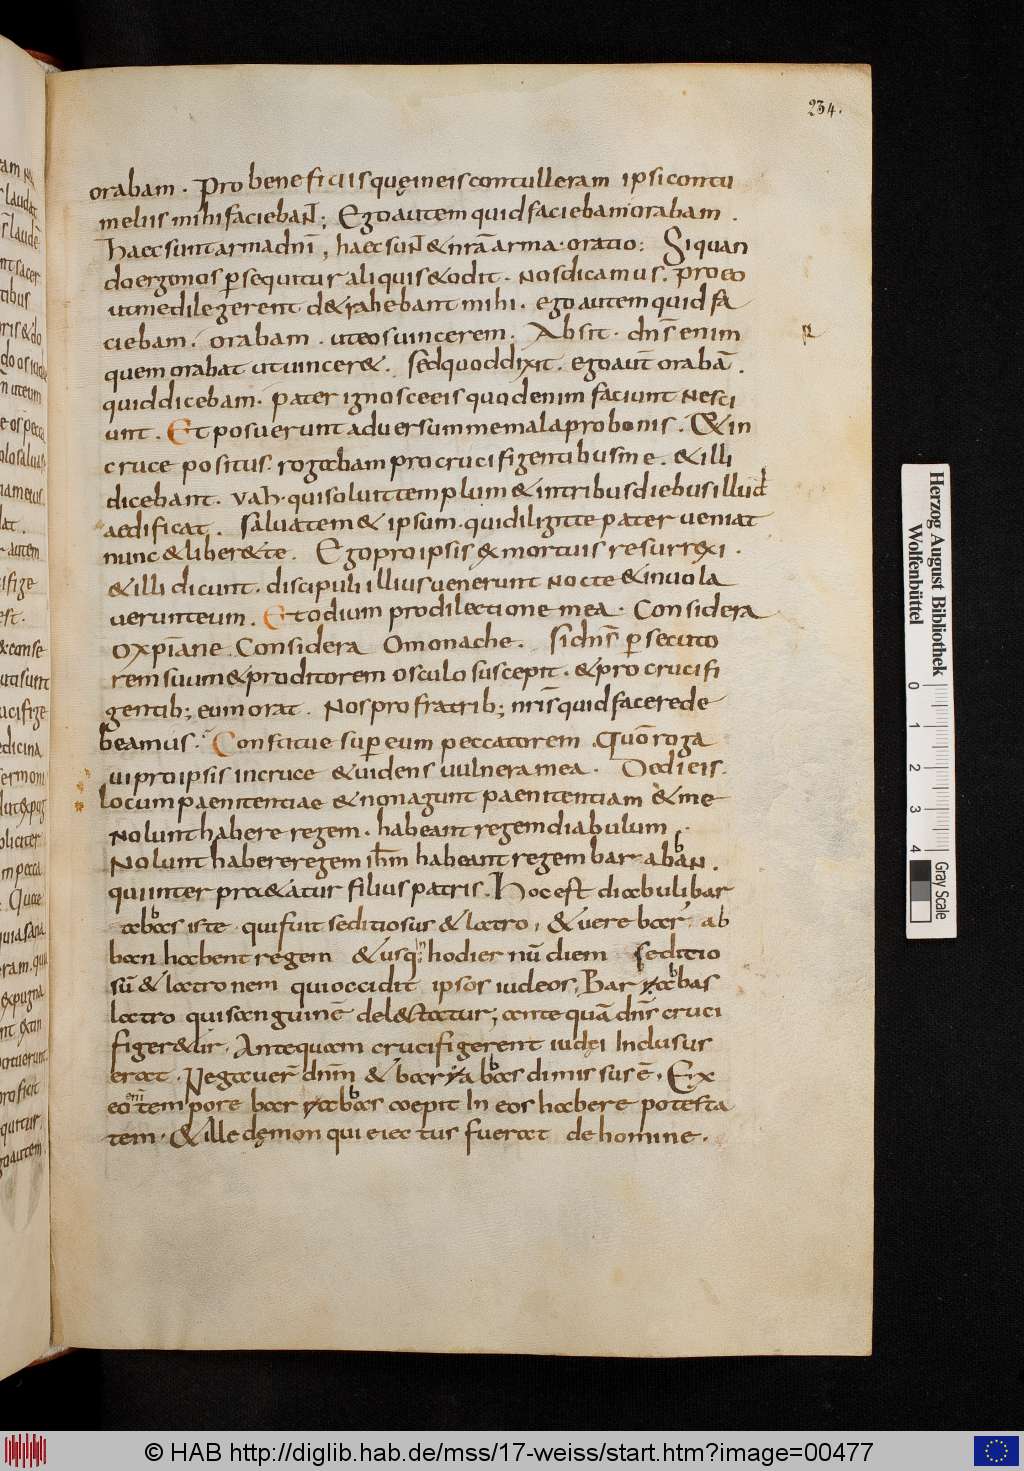 234.
orabam . Pro beneficiis quę in eis contulleram ipsi contu
meliis mihi faciebant ; Ego autem quid faciebam orabam .
Haec sunt arma dnī , haec sunt & nr̄a arma . oratio : Si quan
do ergo nos p̱sequitur aliquis & odit . nos dicamus . pro eo
ut me dilegerent d&rahebant mihi . ego autem quid fa
ciebam . orabam . ut eos vincerem . Absit . dns̄ enim
quem orabat ut vincer& . sed quod dixit . ego aut̄ orabā .
quid dicebam . pater ignosce eis quod enim faciunt nesci
unt . Et posuerunt adversum me mala pro bonis . & in
cruce positus . rogabam pro crucifigentibus me . & illi
dicebant . vah . qui solvit templum & in tribus diebus illud
aedificat . salva tem& ipsum . qui diligit te pater veniat
nunc & liber& te . Ego pro ipsis & mortuis resurrexi .
& illi dicunt . discipuli illius venerunt nocte & invola
verunt eum . Et odium pro dilectione mea . Considera
o xpiāne . Considera o monache . si dns̄ p̱secuto
rem suum & proditorem osculo suscepit . & pro crucifi
gentib; eum orat . Nos pro fratrib; nr̄is quid facere de
beamus . Constitue sup̱ eum peccatorem . Quō roga
vi pro ipsis in cruce & videns vulnera mea . Dedi eis .
locum paenitentiae & non agunt paenitentiam & me
nolunt habere regem . habeant regem diabulum .
Nolunt habere regem ihm̄ habeant regem bar abban .
qui interpra&atur filius patris . Hoc est diabuli bar
abbas iste . qui fuit seditiosus & latro , & vere bar . ab
ban habent regem & usq; in hodiernū diem seditio
sū & latronem qui occidit ipsos iudeos . Bar rabbas
latro qui sanguine delectatur ; ante quā dns̄ cruci
figer&ur . Antequam crucifigerent iudęi Inclusus
erat . Negaver̄ dnm̄ & bar ra bbas dimissus ē . Ex
eo eni tempore bar rabbas coepit In eos habere potesta
tem . & ille dęmon qui eiectus fuerat de homine .
Herzog August Bibliothek
Wolfenbüttel
0 1 2 3 4
Gray Scale
© HAB http://diglib.hab.de/mss/17-weiss/start.htm?image=00477